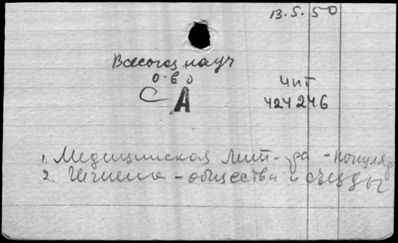 13.5.50
Всесоюз науч
о-во
С А
чит
424246
1. Медицинская лит-ра - популяр
2. Гигиена - общества и съезды